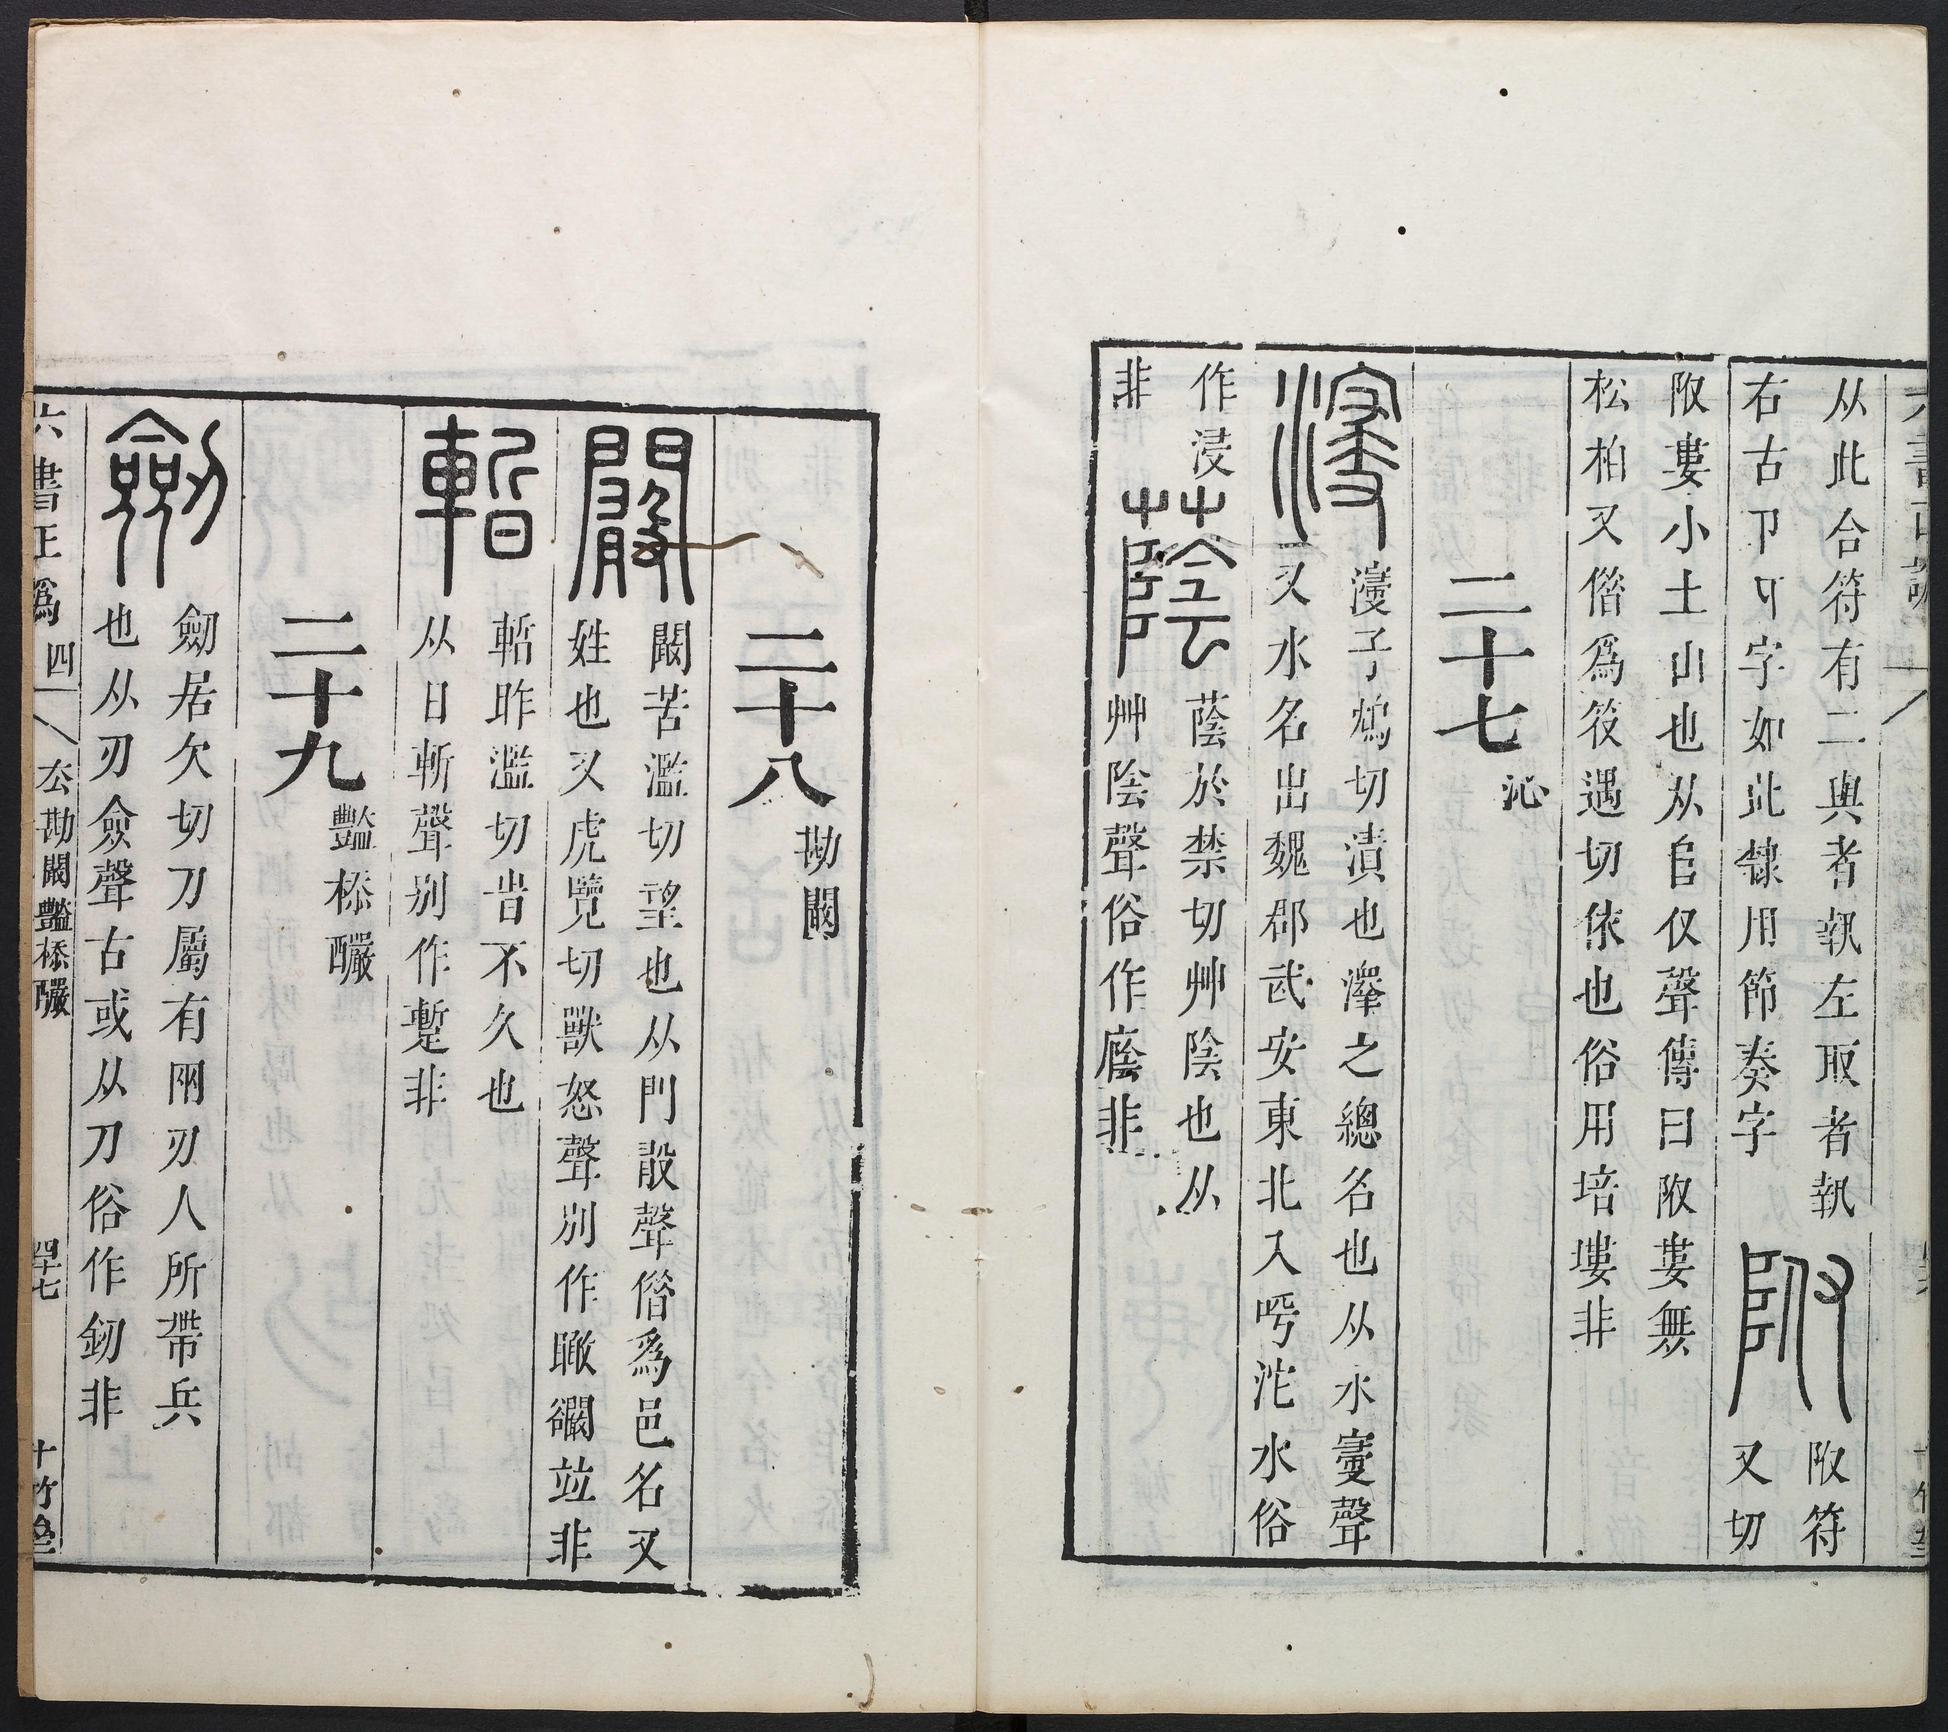 从此合符有二與者執左取者執
右古卩𠨎字如此隸用節奏字
附
阪符
又切
附婁小土山也从𨸏仅聲傳曰附婁無
松柏又偕爲筱遇切依也俗用培塿非
二十七 沁
濅
濅子鴆切漬也澤之總名也从水㝲聲
又水名出魏郡武安東北入呼沱水俗
作浸
非
蔭
蔭於禁切艸陰也从
艸陰聲俗作廕非
二十八 勘闞
闞
闞苦濫切望也从門敢聲偕爲邑名又
姓也又虎覽切獸怒聲別作瞰㘚竝非
暫
暫昨濫切旹不久也
从日斬聲别作蹔非
二十九 豔㮇釅
劒
劒居欠切刀屬有兩刃人所帶兵
也从刃僉聲古或从刀俗作釰非
六書正譌 四 去勘闞豔㮇釅 四十七 十竹齋